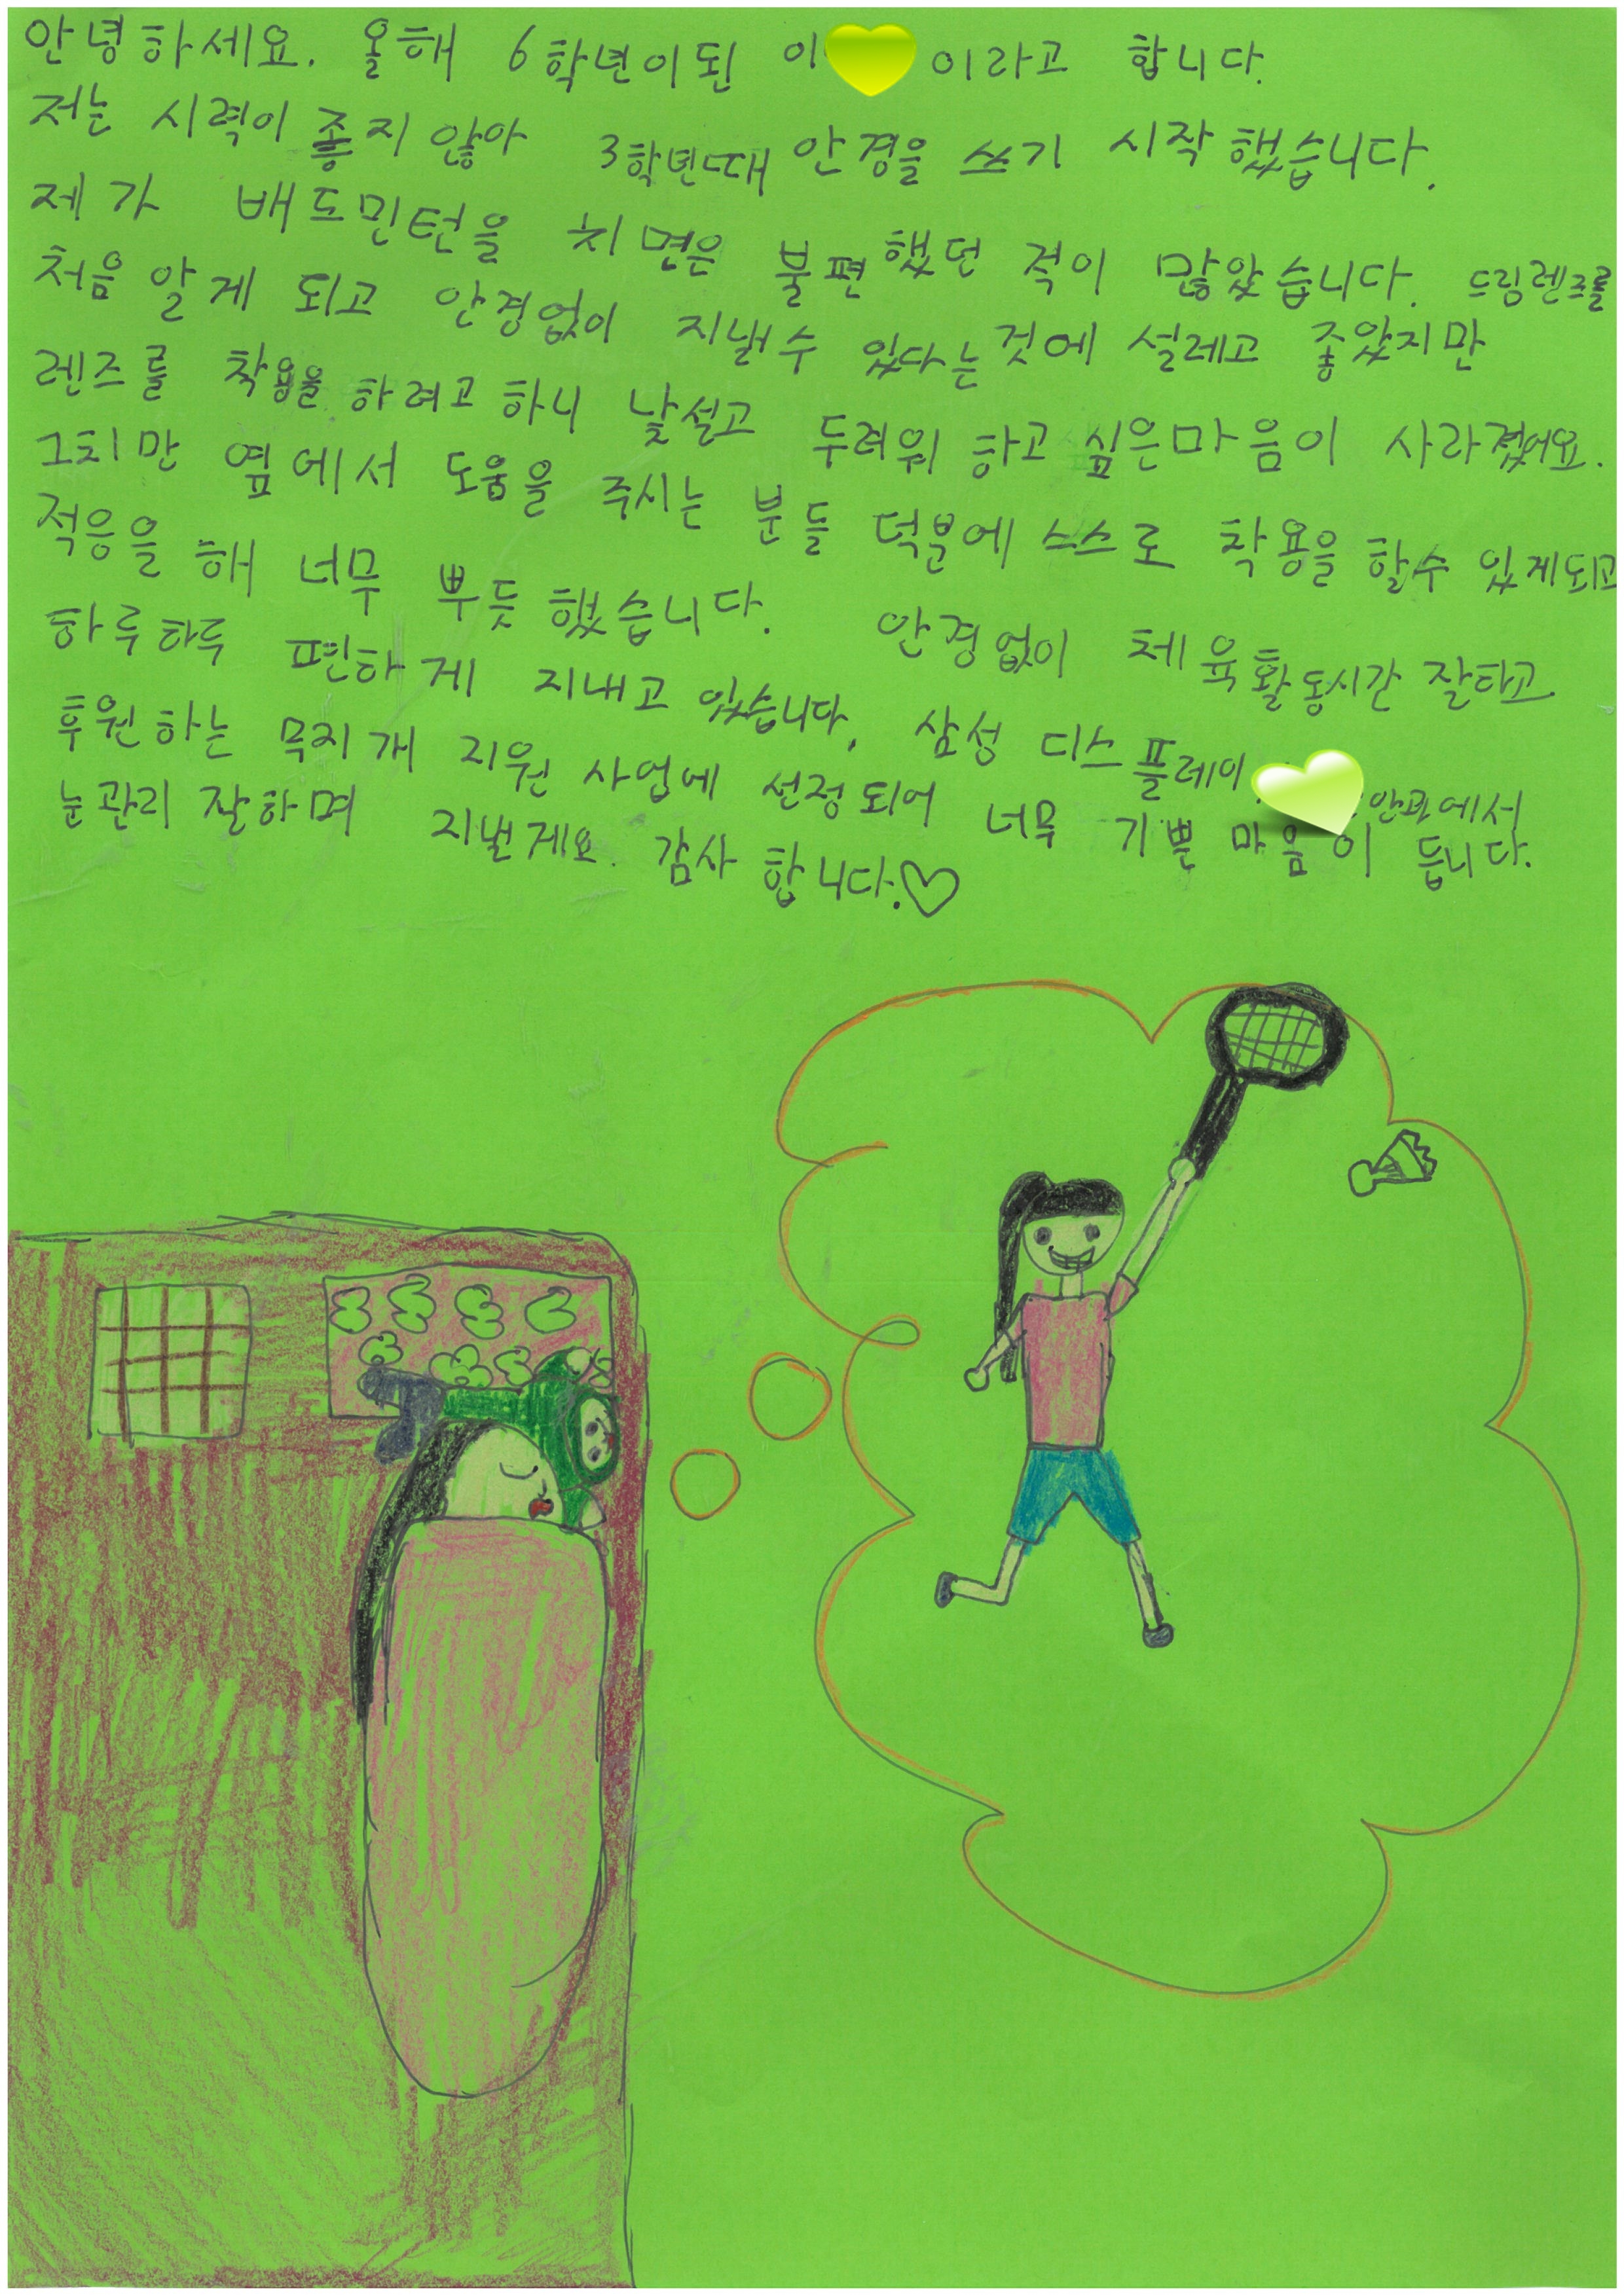 안녕하세요. 올해 6학년이된 이 이라고 합니다.
저는 시력이 좋지 않아 3학년때 안경을 쓰기 시작 했습니다.
제가 배드민턴을 치면은 불편했던 적이 많았습니다. 드림렌즈를
처음 알게 되고 안경없이 지낼수 있다는것에 설레고 좋았지만
렌즈를 착용을 하려고 하니 낯설고 두려워 하고 싶은마음이 사라졌어요.
그치만 옆에서 도움을 주시는 분들 덕분에 스스로 착용을 할수 있게되고
적응을 해 너무 뿌듯했습니다. 안경없이 체육활동시간 잘타고
하루하루 편하게 지내고 있습니다. 삼성 디스플레이, 안과에서
후원하는 무지개 지원 사업에 선정되어 너무 기쁜 마음이 듭니다.
눈관리 잘하며 지낼게요. 감사 합니다.♡